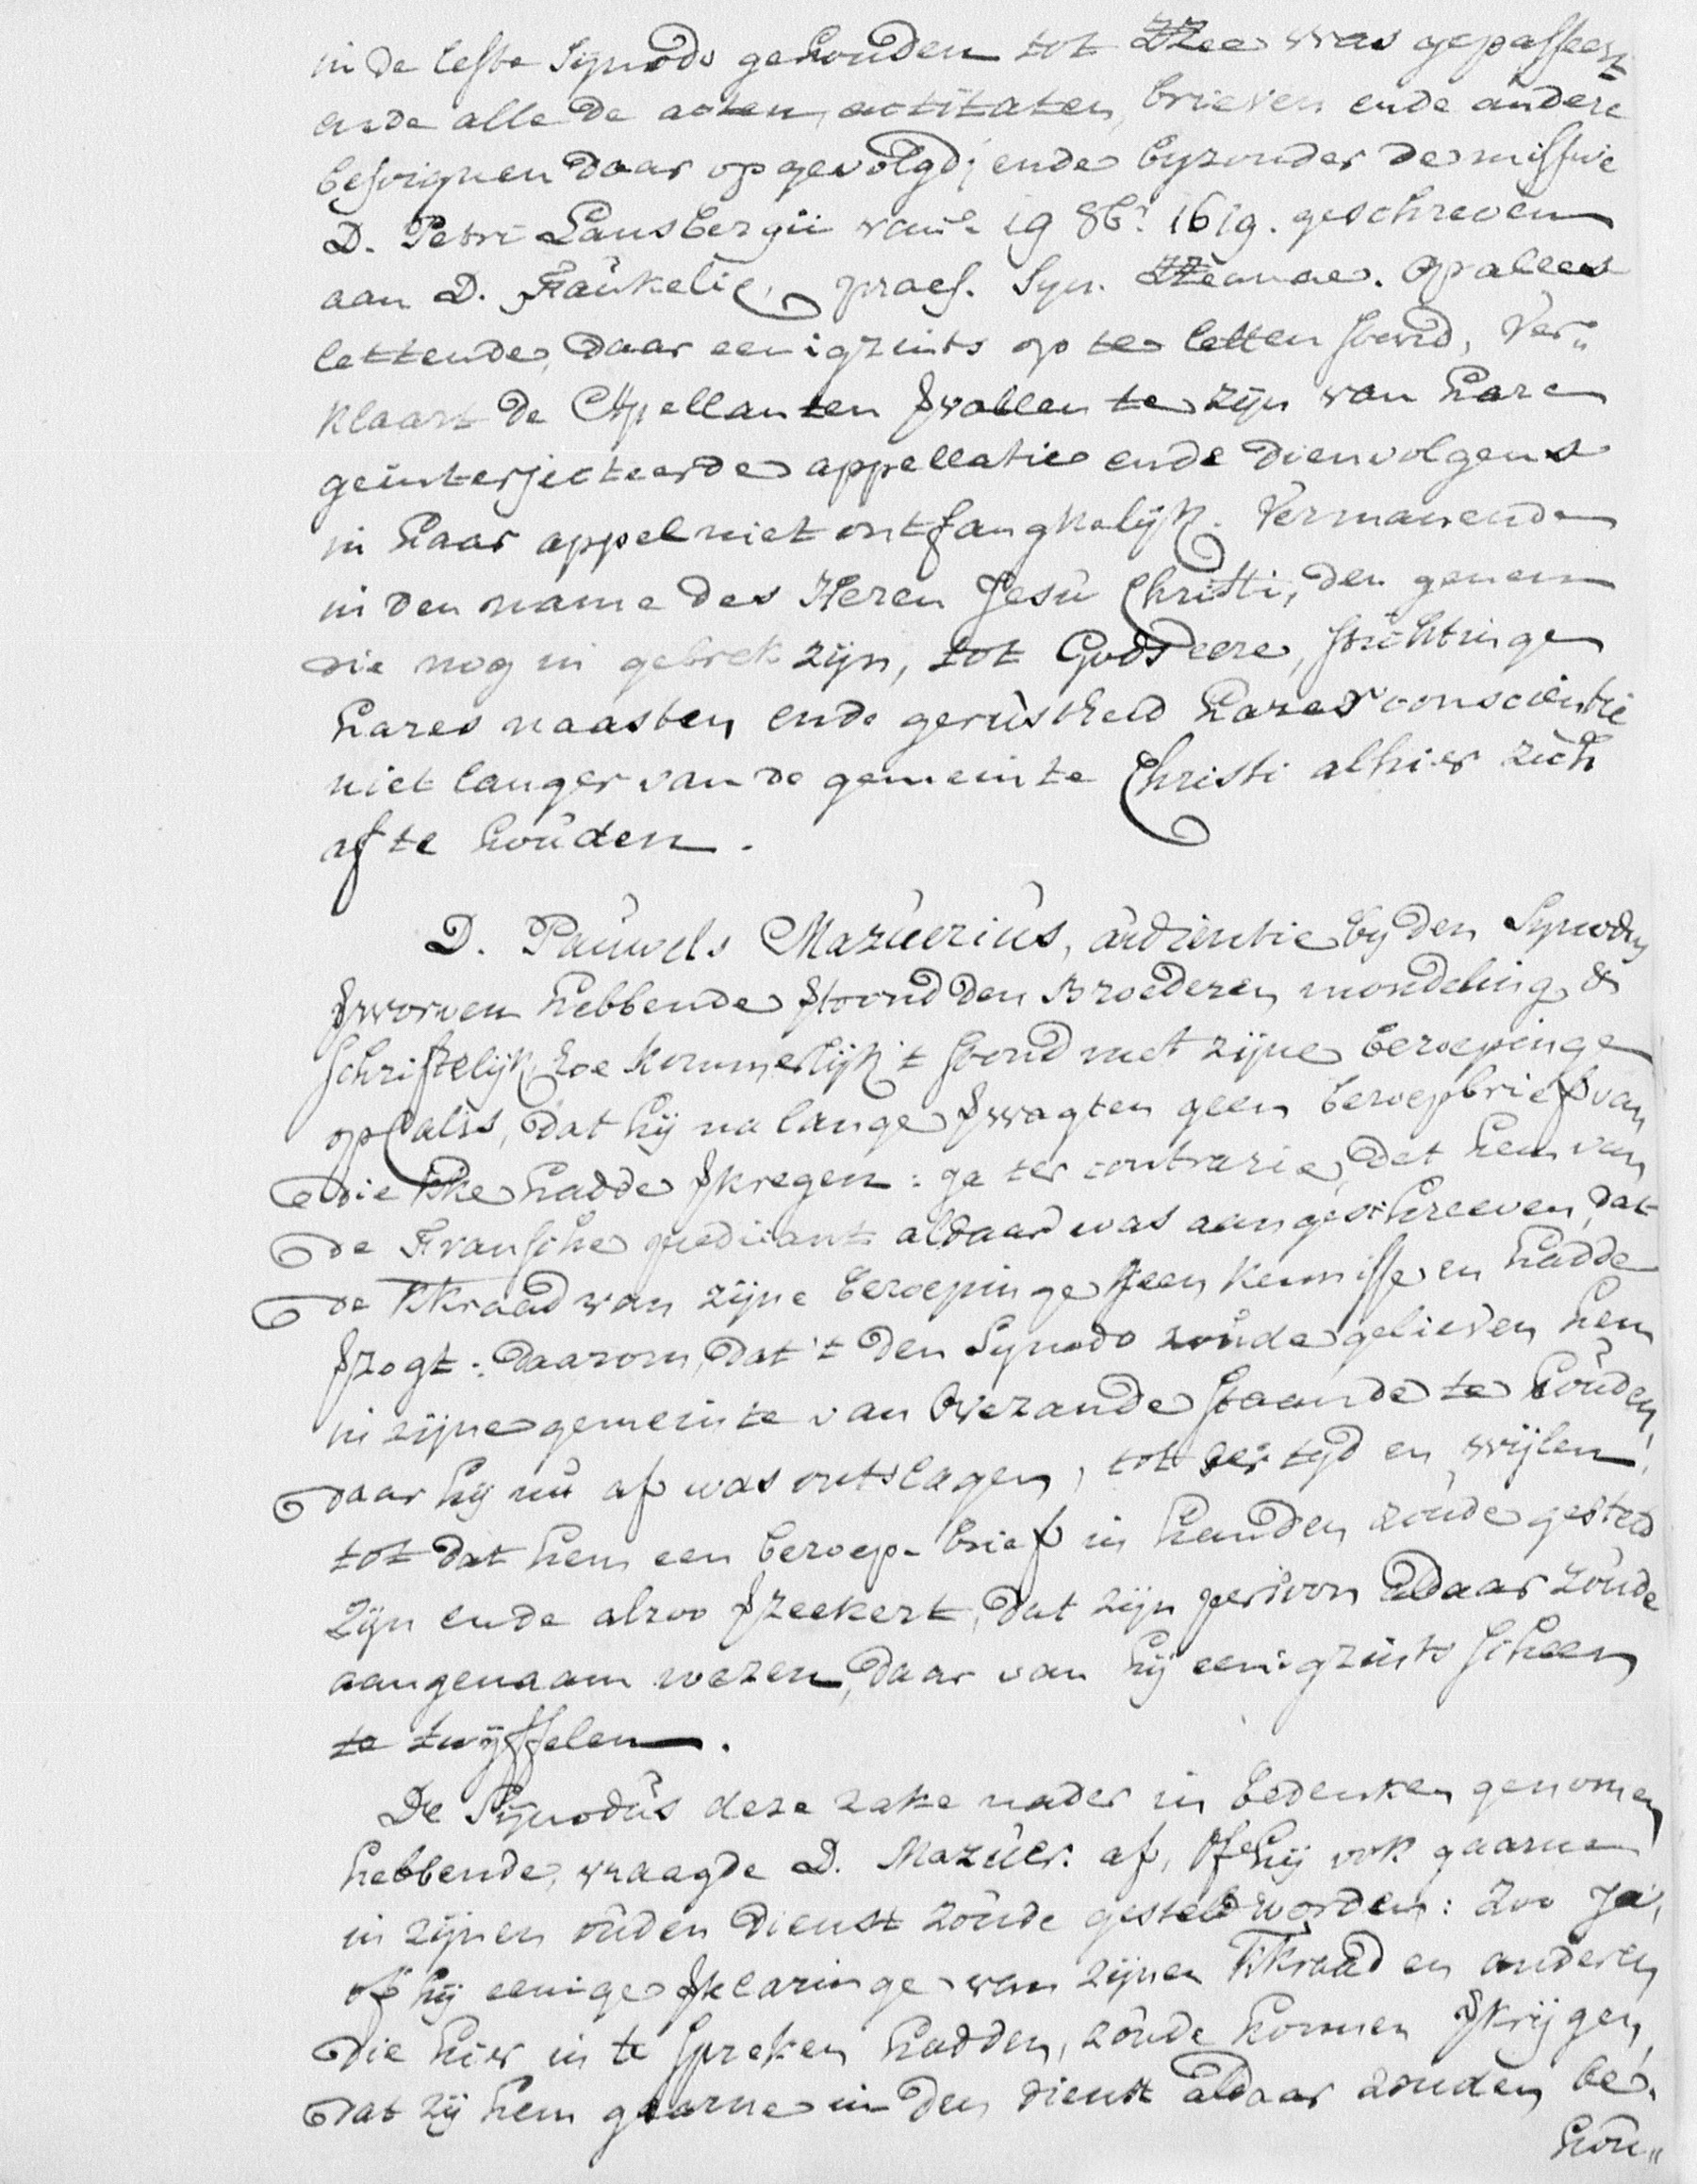 in de leste Synodo gehouden tot ZZee was gepasseert
ende alle de acten, actitaten, brieven ende andere
besoignen daar op gevolgd; ende byzonder de missive
D. Petri Lansbergii van 19 8br 1619. geschreven
aan D. Faukelie, praes. Syn. ZZeanae. Op alles
lettende, daar eenigzints op te letten stond, Ver„
klaart de Appellanten vvallen te zijn van hare
geinterjecteerde appellatie ende dienvolgens
in haar appel niet ontfangkelijk. Vermanende
in den name des Heren Jesu Christi, den genen
die nog in gebrek zijn, tot Gods eere, stichtinge
hares naasten ende gerustheid harer conscientie
niet langer van de gemeinte Christi alhier zich
af te houden.
D. Pauwels Mazuerius, audientie by den Synodus
vworven hebbende vtoond den Broederen mondeling &
schriftelijk, hoe kommerlijk 't stond met zijne beroepinge
op Calis, dat hij na lange vwagten geen beroepbrief van
die kke hadde vkregen: ja ter contrarie, dat hem van
de Fransche predicant aldaar was aengeschreeven, dat
de kkraad van zijne beroepinge geen kennisse en hadde
vzogt: daarom, dat 't den Synodo zoude gelieven hem
in zijne gemeinte van Overzande staande te houden,
daar hij nu af was ontslagen, tot der tyd en wijlen,
tot dat hem een beroep-brief in handen zoude gesteld
zijn ende alzoo vzeekert, dat zijn persoon aldaar zoude
aangenaam wezen, daar van hij eenigzints scheen
te twijffelen.
De Synodus deze zake nader in bedenken genomen
hebbende, vraagde D. Mazuer. af, of hij ook gaarne
in zijnen ouden dienst zoude gesteld worden: zoo ja,
of hij eenige vklaringe van zijnen kkraad en anderen
die hier in te spreken hadden, zoude konnen vkrijgen,
dat zij hem gaarne in den dienst aldaar zouden be-
hou„